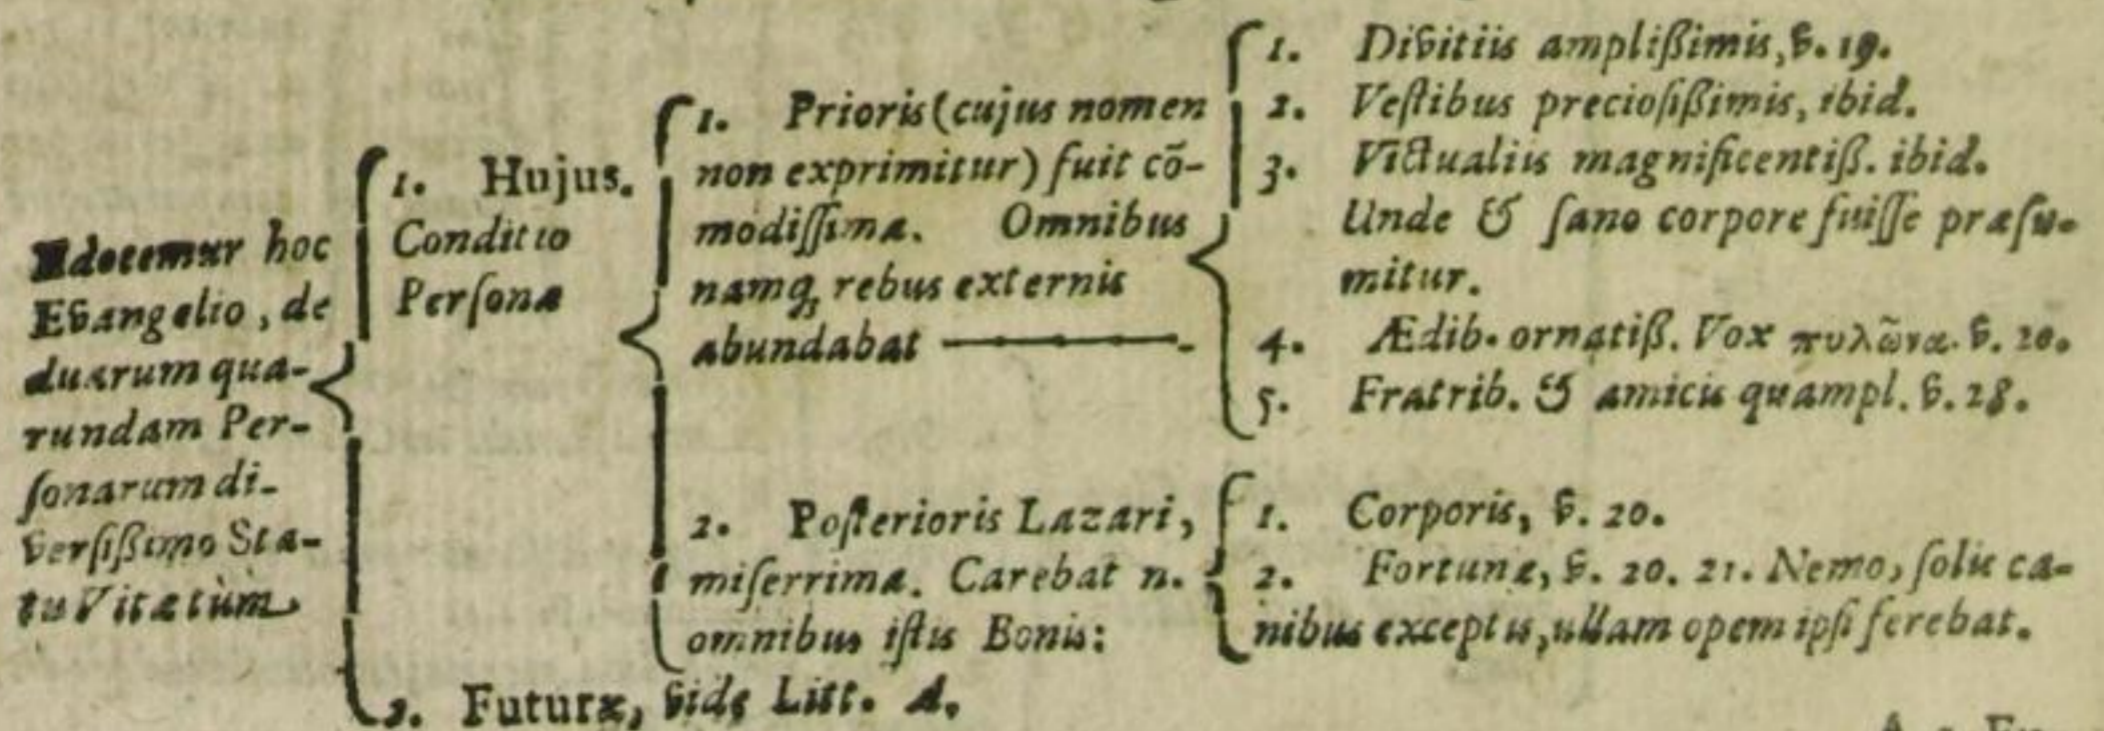 Edocemur hoc
Evangelio, de
duarum qua-
rundam Per-
sonarum di-
versißimo Sta-
tu Vitæ tùm
1. Hujus.
Conditio
Personæ
1. Prioris (cujus nomen
non exprimitur) fuit cō-
modissima. Omnibus
namq; rebus externis
abundabat
1. Divitiis amplißimis, v. 19.
2. Vestibus preciosißimis, ibid.
3. Victualiis magnificentiß. ibid.
Unde & sano corpore fuisse præsu-
mitur.
4. Ædib. ornatiß. Vox πυλῶνα. v. 20.
5. Fratrib. & amicis quampl. v. 28.
2. Posterioris Lazari,
miserrima. Carebat n.
omnibus istis Bonis:
1. Corporis, v. 20.
2. Fortunæ, v. 20. 21. Nemo, solis ca-
nibus exceptis, ullam opem ipsi ferebat.
2. Futuræ, vide Litt. A.